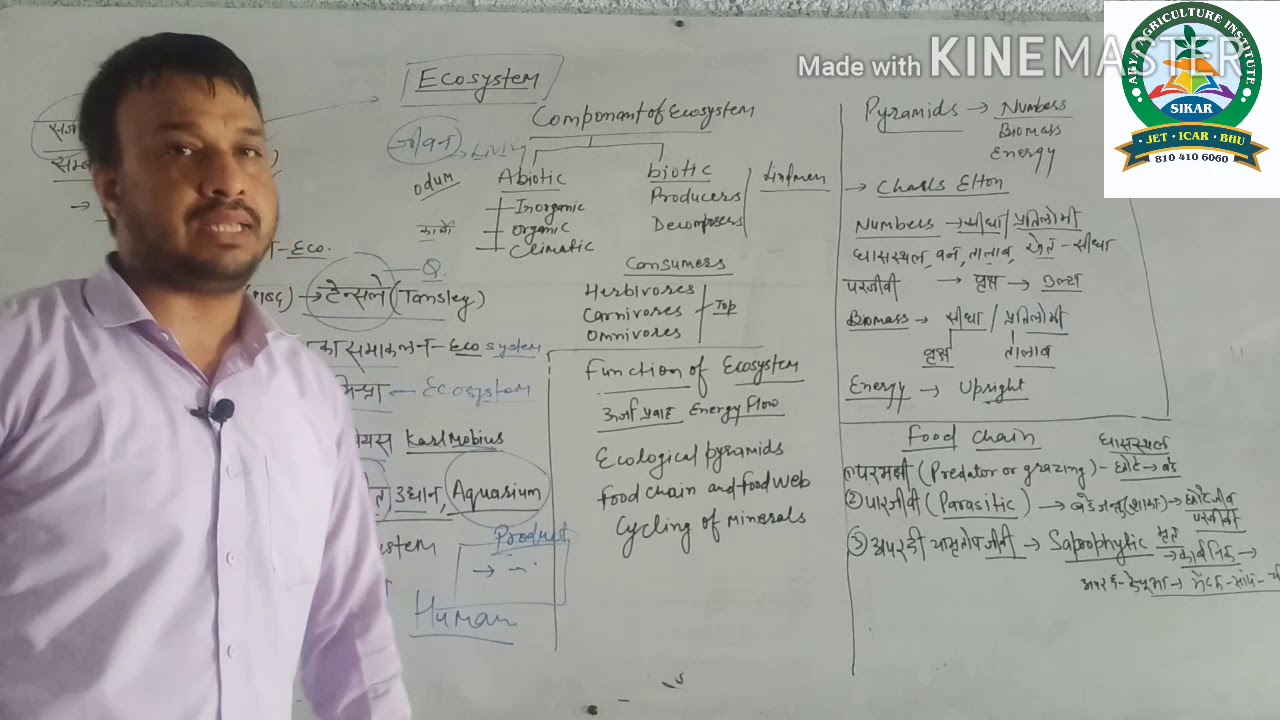 Made with KINEMASTER
ABYA AGRICULTURE INSTITUTE
SIKAR
JET · ICAR · BHU
810 410 6060
Ecosystem
Componant of Ecosystem
जीवन
Living
Odum
Abiotic
Inorganic
organic
Climatic
biotic
Producers
Decomposers
Lindman
Consumers
Herbivores
Carnivores
Omnivores
Top
Eco.
Q.
टेन्सले (Tansley)
समाकलन - Eco system
Ecosystem
Karl Mobius
उद्यान, Aquarium
Product
Human
Function of Ecosystem
ऊर्जा प्रवाह Energy Flow
Ecological pyramids
food chain and food web
Cycling of Minerals
Pyramids → Numbers
Biomass
Energy
→ Charls Elton
Numbers → सीधा / प्रतिलोमी
घासस्थल, वन, तालाब, खेत - सीधा
परजीवी → वृक्ष → उल्टा
Biomass → सीधा / प्रतिलोमी
वृक्ष तालाब
Energy → Upright
Food Chain
घासस्थल
परभक्षी (Predator or grazing) - छोटे → बडे
② परजीवी (Parasitic) →
परजीवी
③ → Saprophytic मृत
→ कार्बनिक →